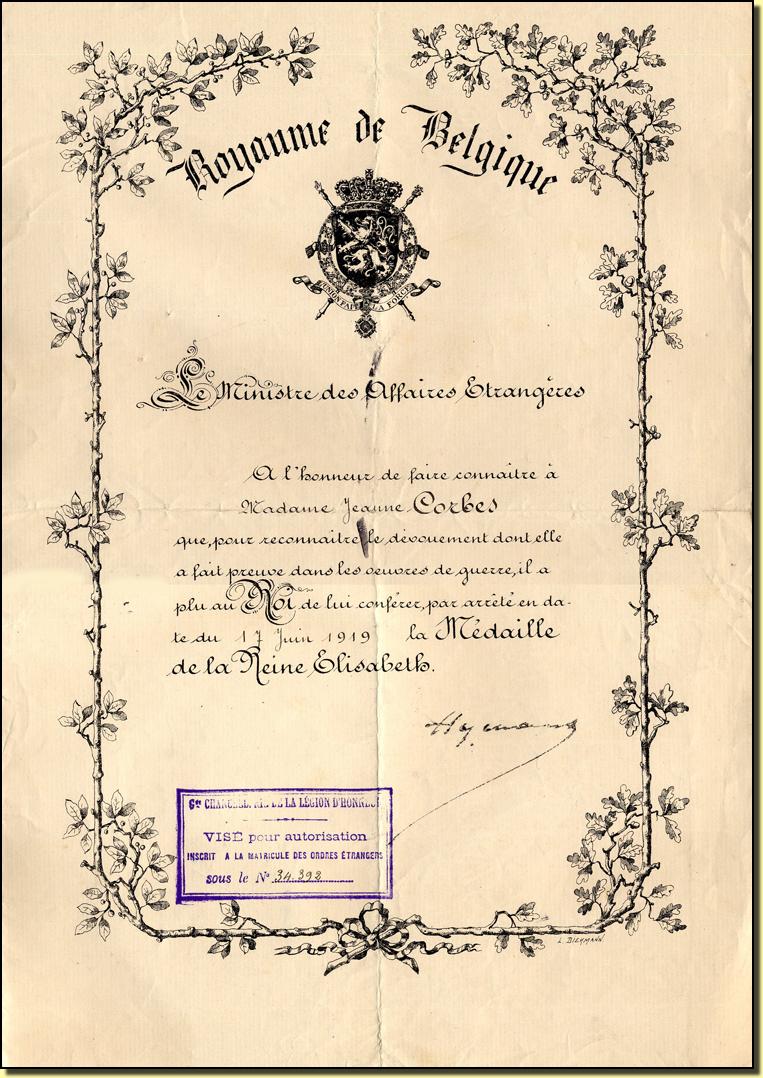 Royaume de Belgique
L'UNION FAIT LA FORCE
Le Ministre des Affaires Etrangères
A l'honneur de faire connaître à
Madame Jeanne Corbes
que, pour reconnaître le dévouement dont elle
a fait preuve dans les oeuvres de guerre, il a
plu au Roi de lui conférer, par arrêté en da-
te du 17 Juin 1919 la Médaille
de la Reine Elisabeth.
Gde CHANCELLERIE DE LA LÉGION D'HONNEUR
VISÉ pour autorisation
INSCRIT A LA MATRICULE DES ORDRES ÉTRANGERS
sous le No 34.392